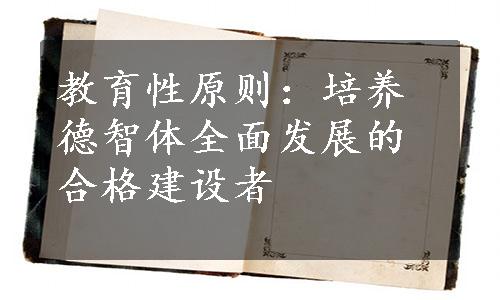 教育性原则：培养
德智体全面发展的
合格建设者